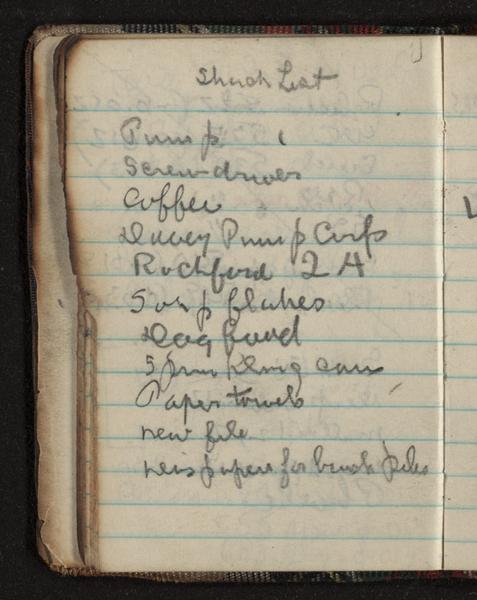 Shack List
Pump
Screwdriver
Coffee
Pump Corp
Rochford 2 A
Soap flakes
Dog food
Sprinkling can
Paper towels
new file
newspapers for brush piles